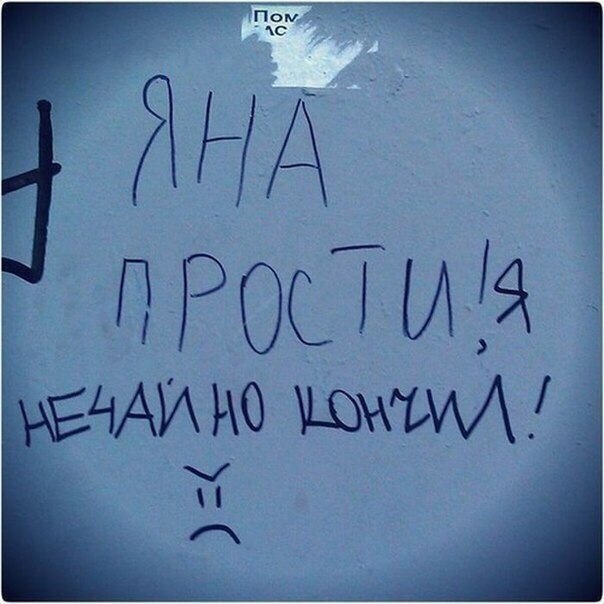 Пом
ЯНА
ПРОСТИ!,Я
НЕЧАЙНО КОНЧИЛ!